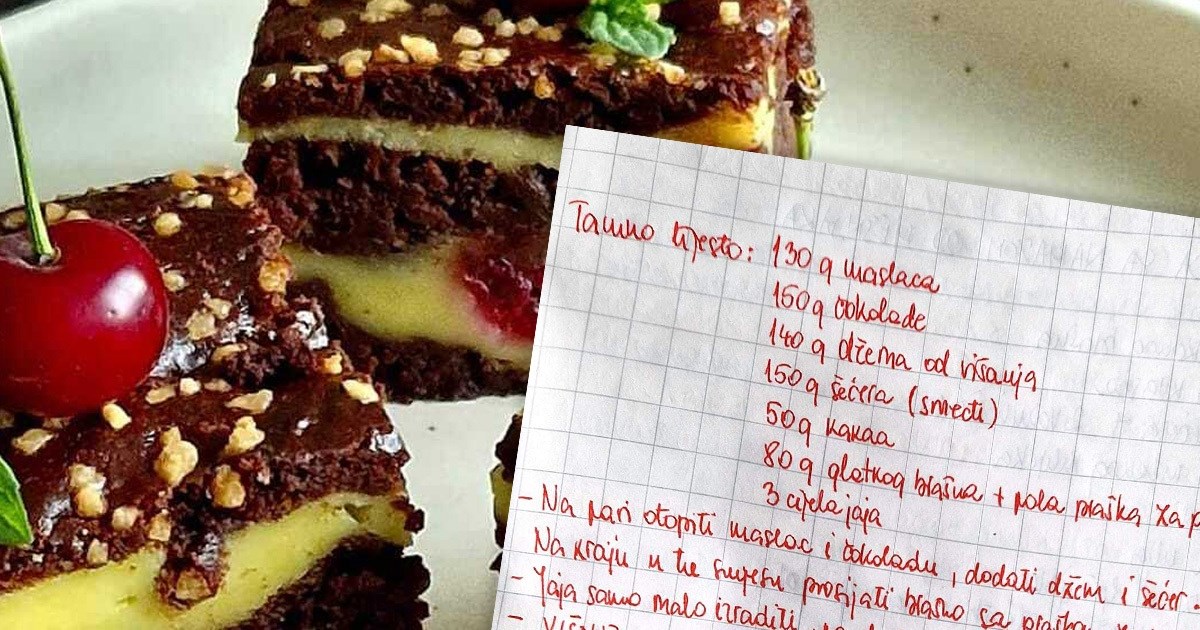 Tamno tijesto: 130 g maslaca
150 g čokolade
140 g džema od višanja
150 g šećera (smeđi)
50 g kakaa
80 g glatkog brašna + pola praška za p
3 cijela jaja
- Na pari otopiti maslac i čokoladu, dodati džem i šećer.
Na kraju u tu smjesu prosijati brašno sa praškom
- Jaja samo malo izraditi
-